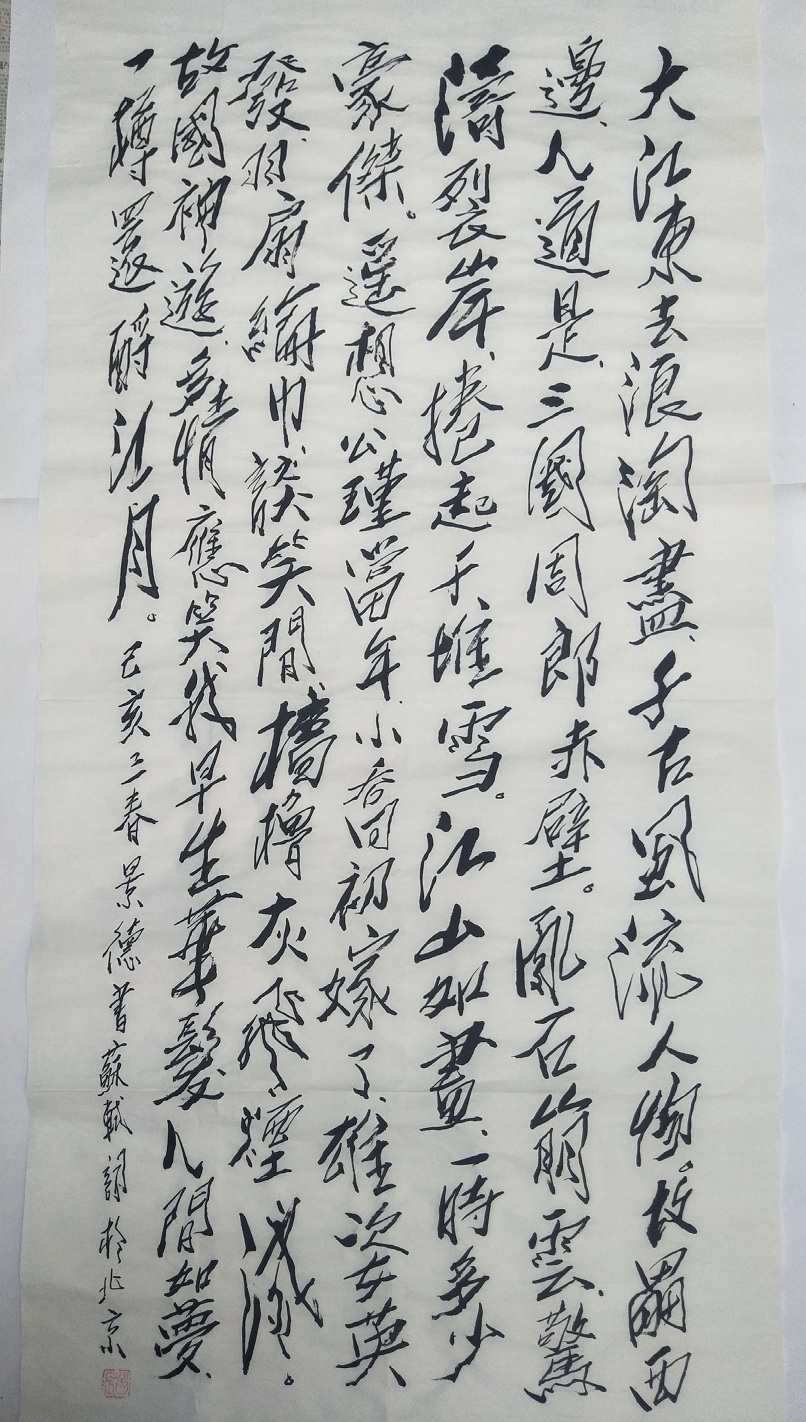 大江東去浪淘盡、千古風流人物。故壘西
邊、人道是、三國周郎赤壁。亂石崩雲、驚
濤裂岸、捲起千堆雪。江山如畫、一時多少
豪傑。遥想公瑾當年、小喬初嫁了、雄姿英
發、羽扇綸巾、談笑間、檣櫓灰飛煙滅。
故國神遊、多情應笑我早生華髮人間如夢、
一樽還酹江月。己亥三春景德書蘇軾詞於北京